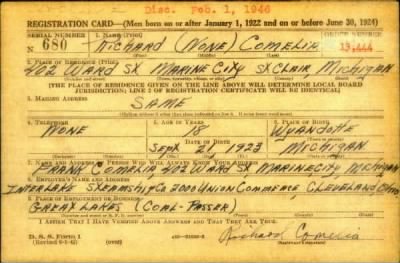 Disc. Feb. 1, 1946
REGISTRATION CARD—(Men born on or after January 1, 1922 and on or before June 30, 1924)
SERIAL NUMBER
1. NAME (Print)
ORDER NUMBER
N 680
RICHARD (NONE) COMELIA
13,444
2. PLACE OF RESIDENCE (Print)
402 WARD ST MARINE CITY ST CLAIR MICHIGAN
[THE PLACE OF RESIDENCE GIVEN ON THE LINE ABOVE WILL DETERMINE LOCAL BOARD
JURISDICTION; LINE 2 OF REGISTRATION CERTIFICATE WILL BE IDENTICAL]
3. MAILING ADDRESS
SAME
4. TELEPHONE
5. AGE IN YEARS
6. PLACE OF BIRTH
NONE
18
WYANDOTTE
DATE OF BIRTH
SEPT 21 1923
MICHIGAN
7. NAME AND ADDRESS OF PERSON WHO WILL ALWAYS KNOW YOUR ADDRESS
FRANK COMELIA 402 WARD ST MARINE CITY MICHIGAN
8. EMPLOYER'S NAME AND ADDRESS
INTERLAKE STEAMSHIP CO. 2000 UNION COMMERCE, CLEVELAND, OHIO
9. PLACE OF EMPLOYMENT OR BUSINESS
GREAT LAKES (COAL-PASSER)
I AFFIRM THAT I HAVE VERIFIED ABOVE ANSWERS AND THAT THEY ARE TRUE.
D. S. S. FORM 1
Richard Comelia